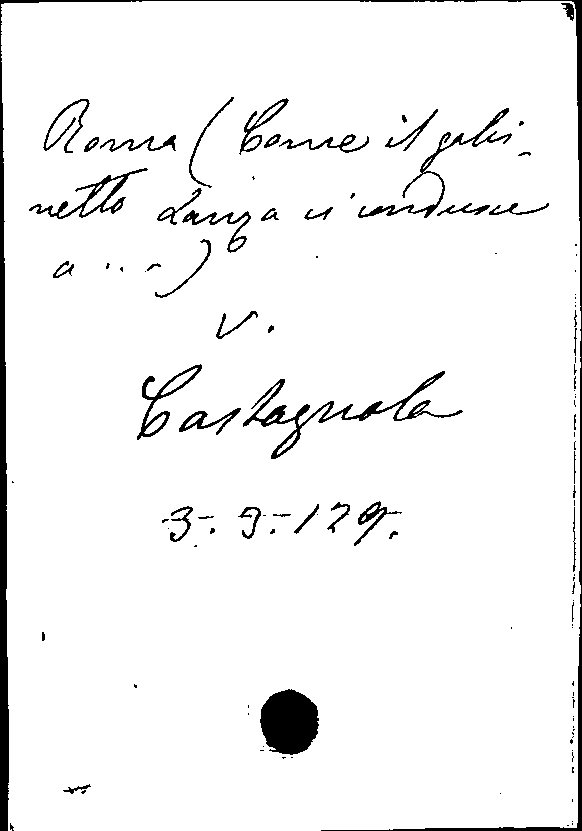 Roma (Come il gabi-
netto Lanza si indusse
a ...)
V.
Castagnola
3. 3. 129.